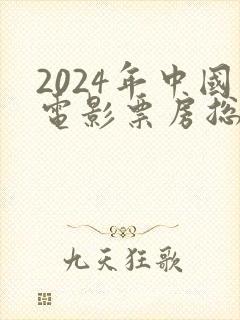 2024年中國
電影票房総
九天狂歌